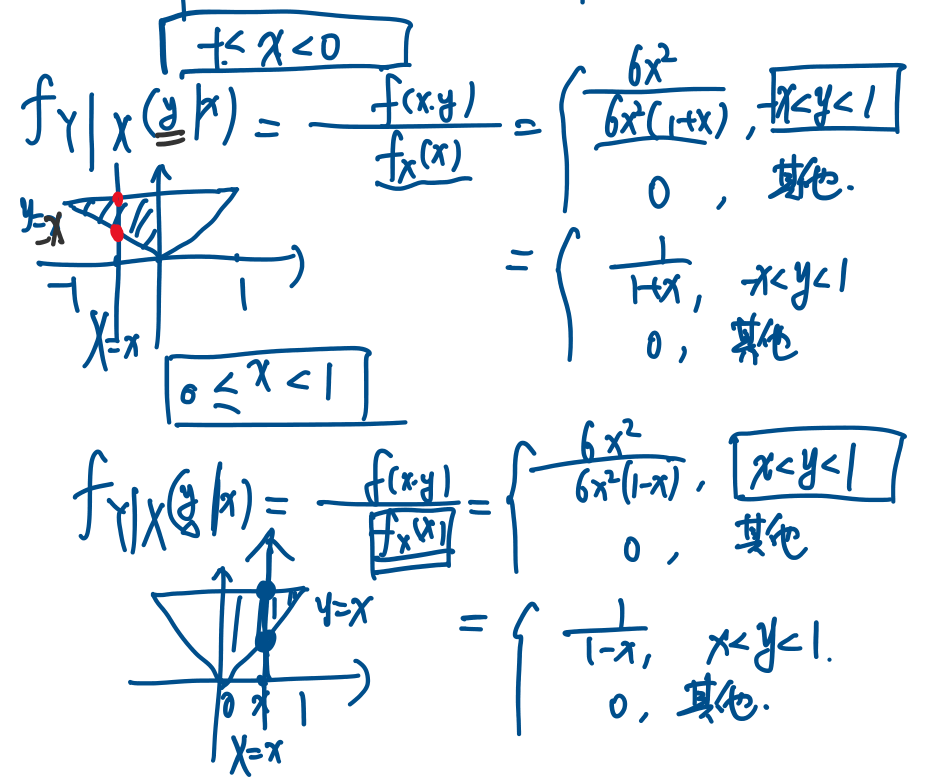 -1<x<0
f_{Y|X}(y|x) = f(x.y)/f_X(x) = { 6x²/6x²(1+x), -x<y<1
0, 其他.
y=x
-1 1
X=x
= { 1/1+x, -x<y<1
0, 其他
0≤x<1
f_{Y|X}(y|x) = f(x.y)/f_X(x) = { 6x²/6x²(1-x), x<y<1
0, 其他
y=x
0 x 1
X=x
= { 1/1-x, x<y<1.
0, 其他.